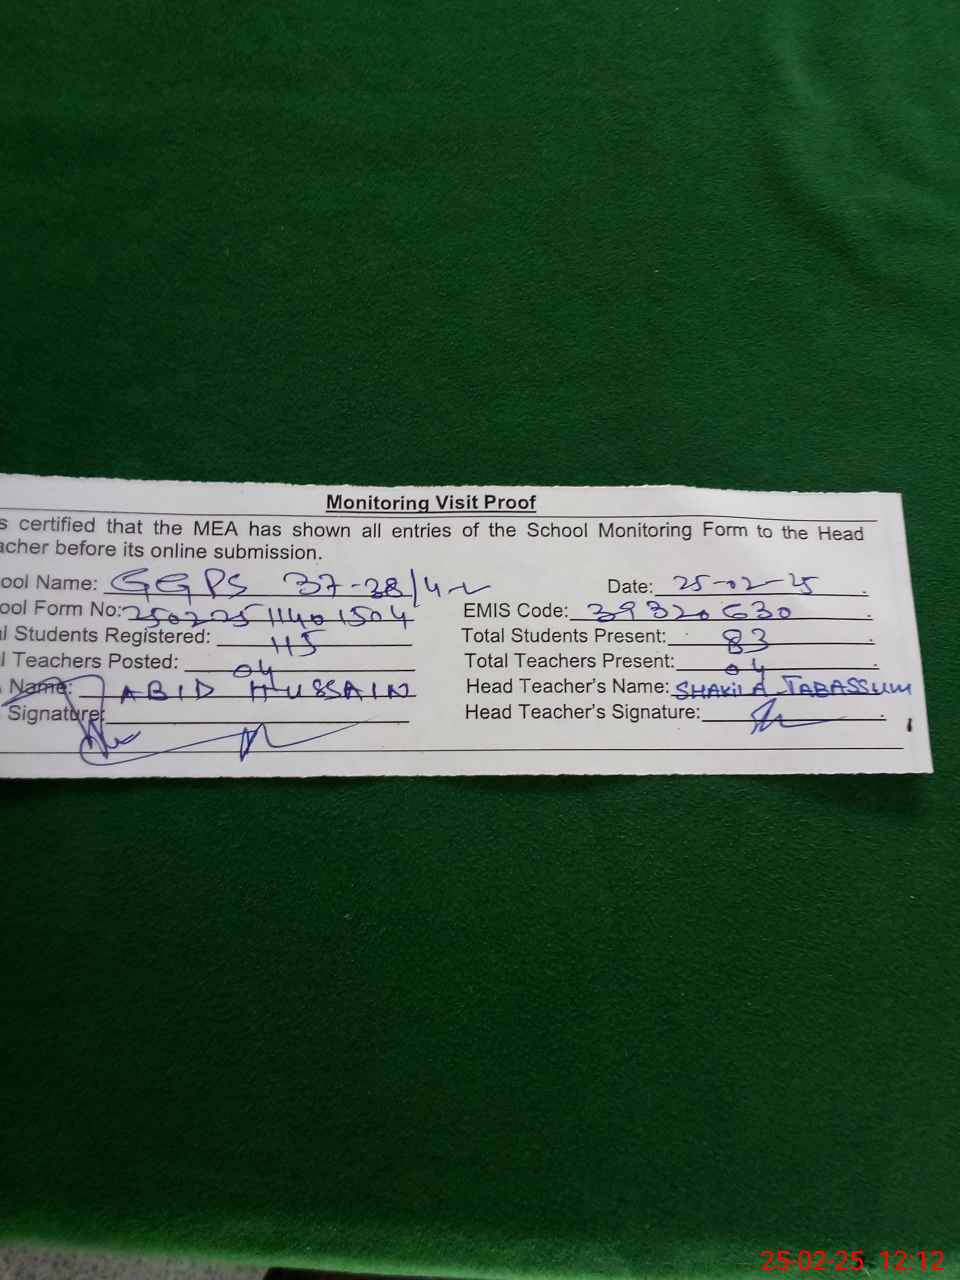 Monitoring Visit Proof
s certified that the MEA has shown all entries of the School Monitoring Form to the Head
acher before its online submission.
ool Name: GGPS 37-38/4-L Date: 25-02-25
ool Form No: 25022511401504 EMIS Code: 39320630
l Students Registered: 115 Total Students Present: 83
l Teachers Posted: 04 Total Teachers Present: 04
Name: ABID HUSSAIN Head Teacher's Name: SHAKILA TABASSUM
Signature: Head Teacher's Signature:
25-02-25 12:12